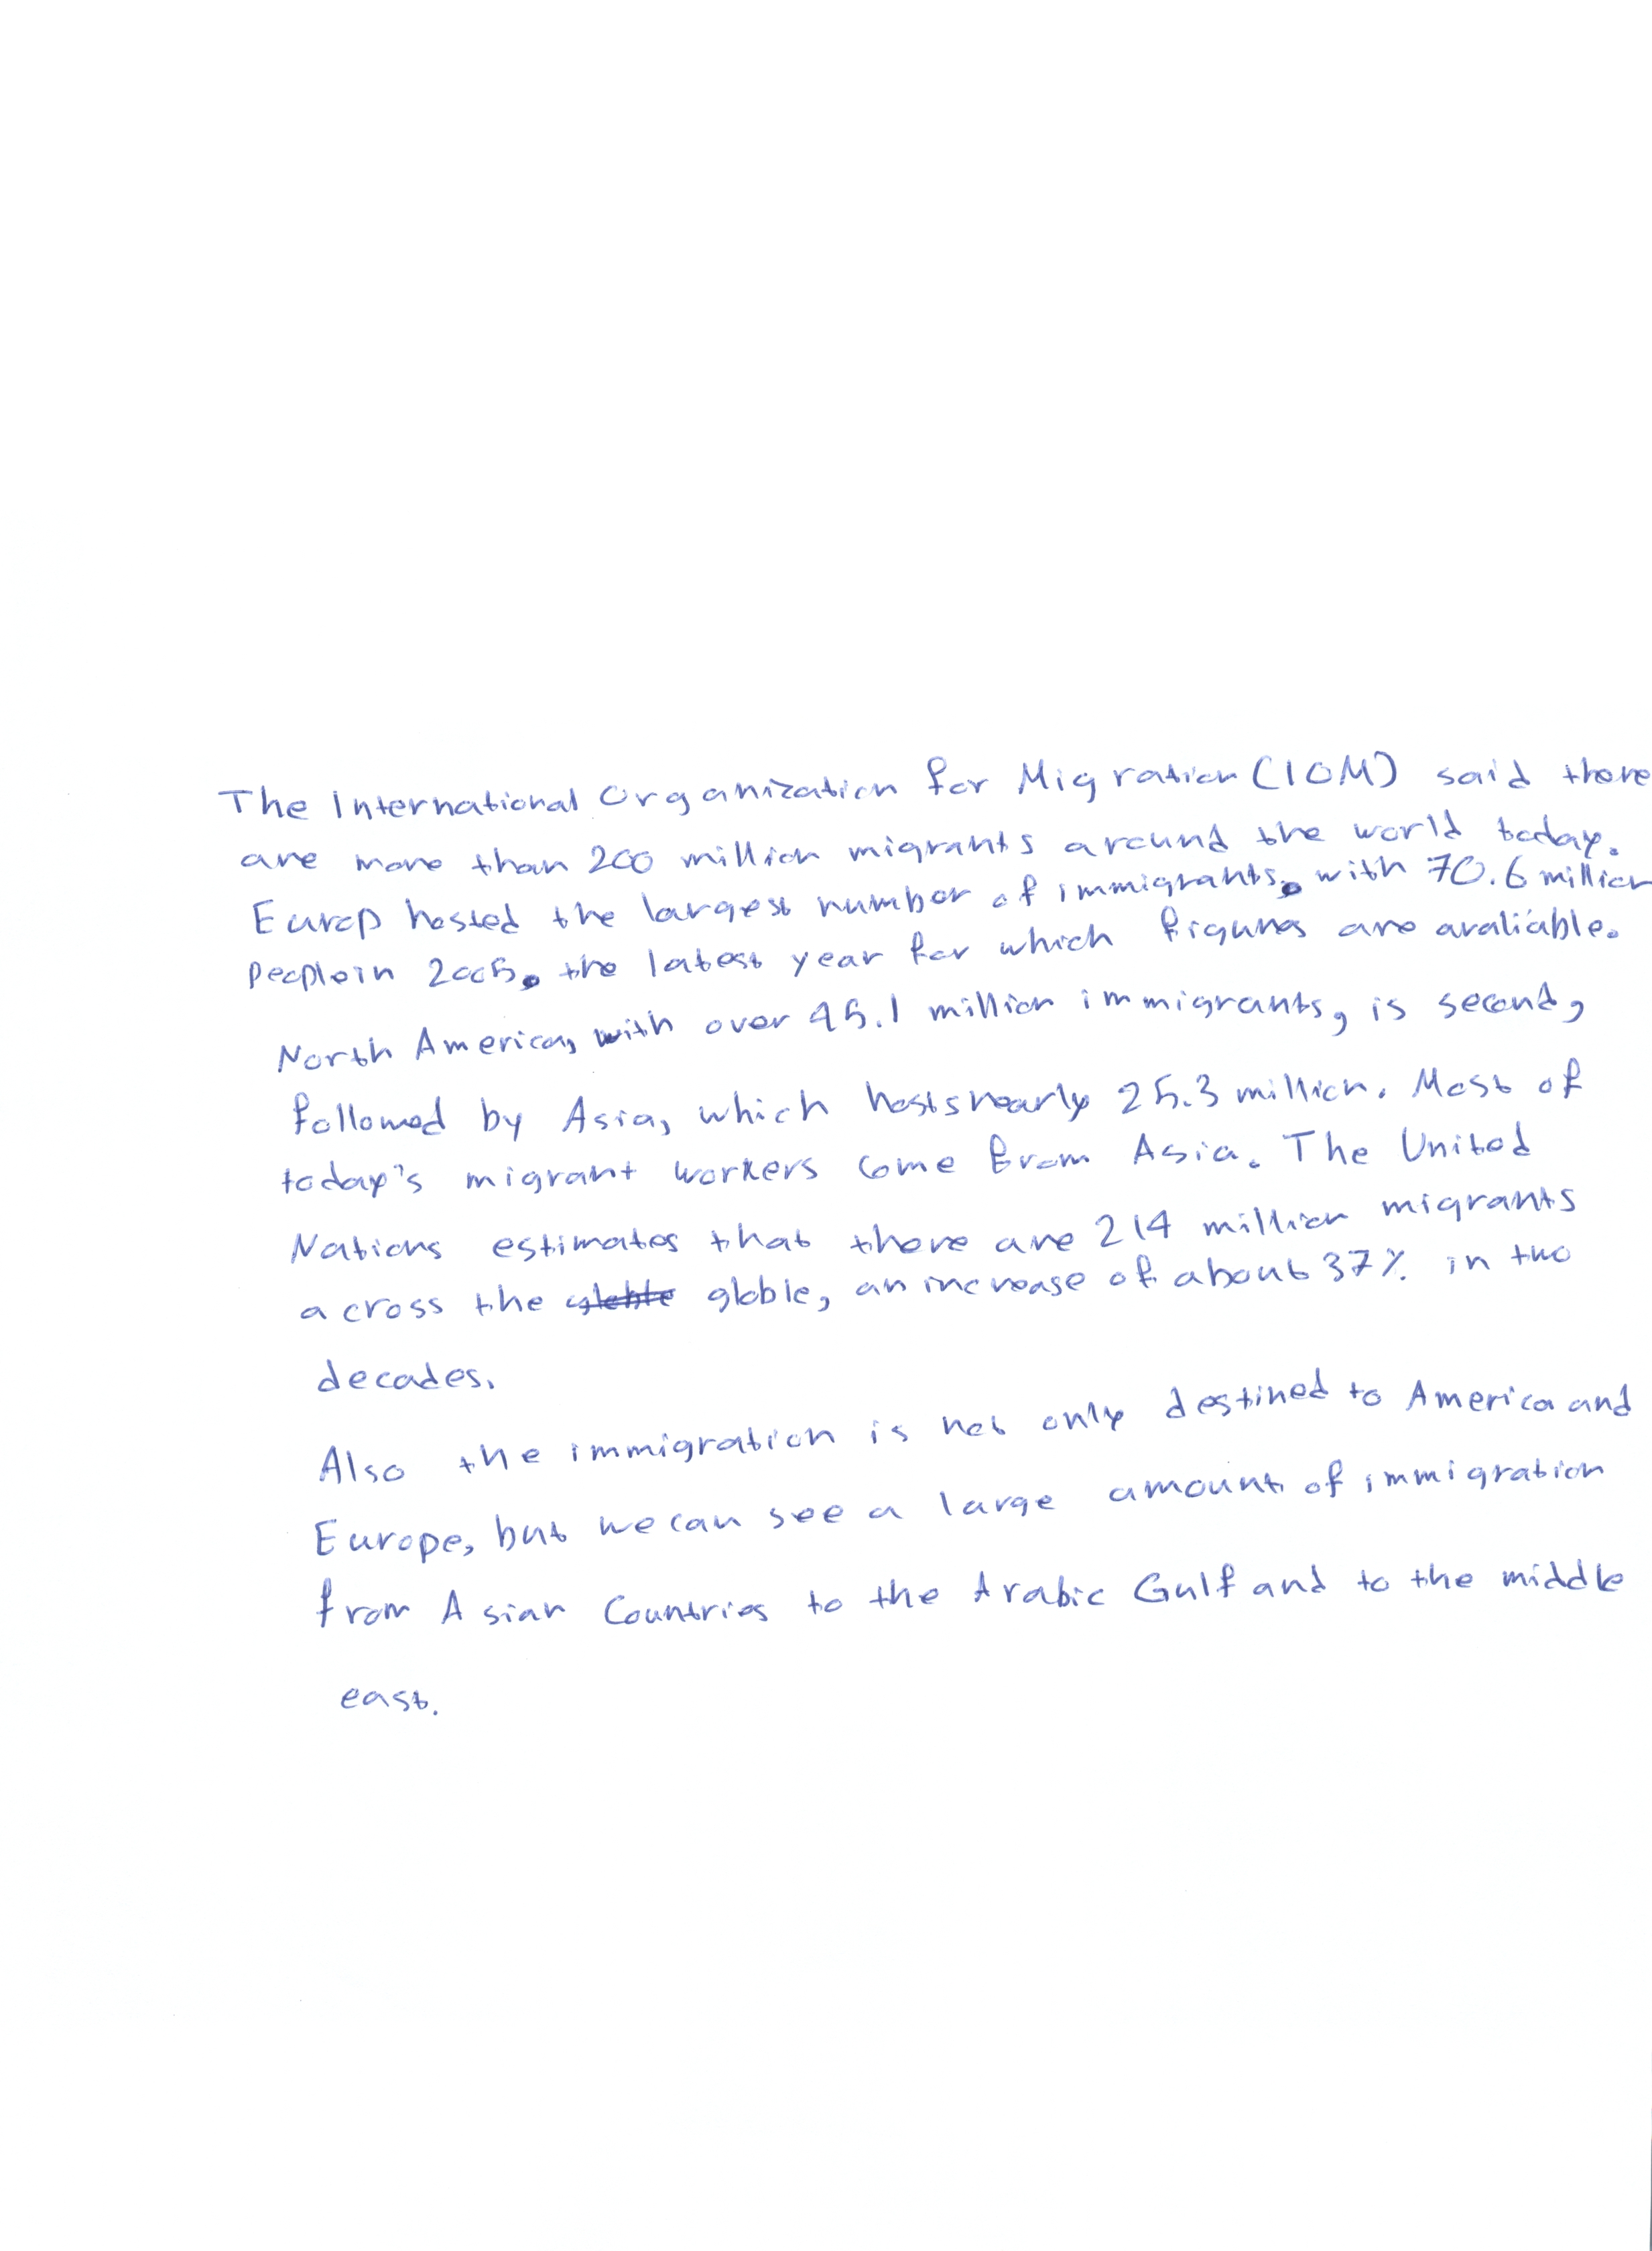 The International Organization for Migration (IOM) said there
are more than 200 million migrants around the world today.
Europ hosted the largest number of immigrants, with 70.6 million
people in 2005, the latest year for which figures are avaliable.
North America, with over 45.1 million immigrants, is second,
followed by Asia, which hosts nearly 25.3 million. Most of
today's migrant workers come from Asia. The United
Nations estimates that there are 214 million migrants
across the globle, an increase of about 37% in two
decades.
Also the immigration is not only destined to America and
Europe, but we can see a large amount of immigration
from Asian Countries to the Arabic Gulf and to the middle
east.